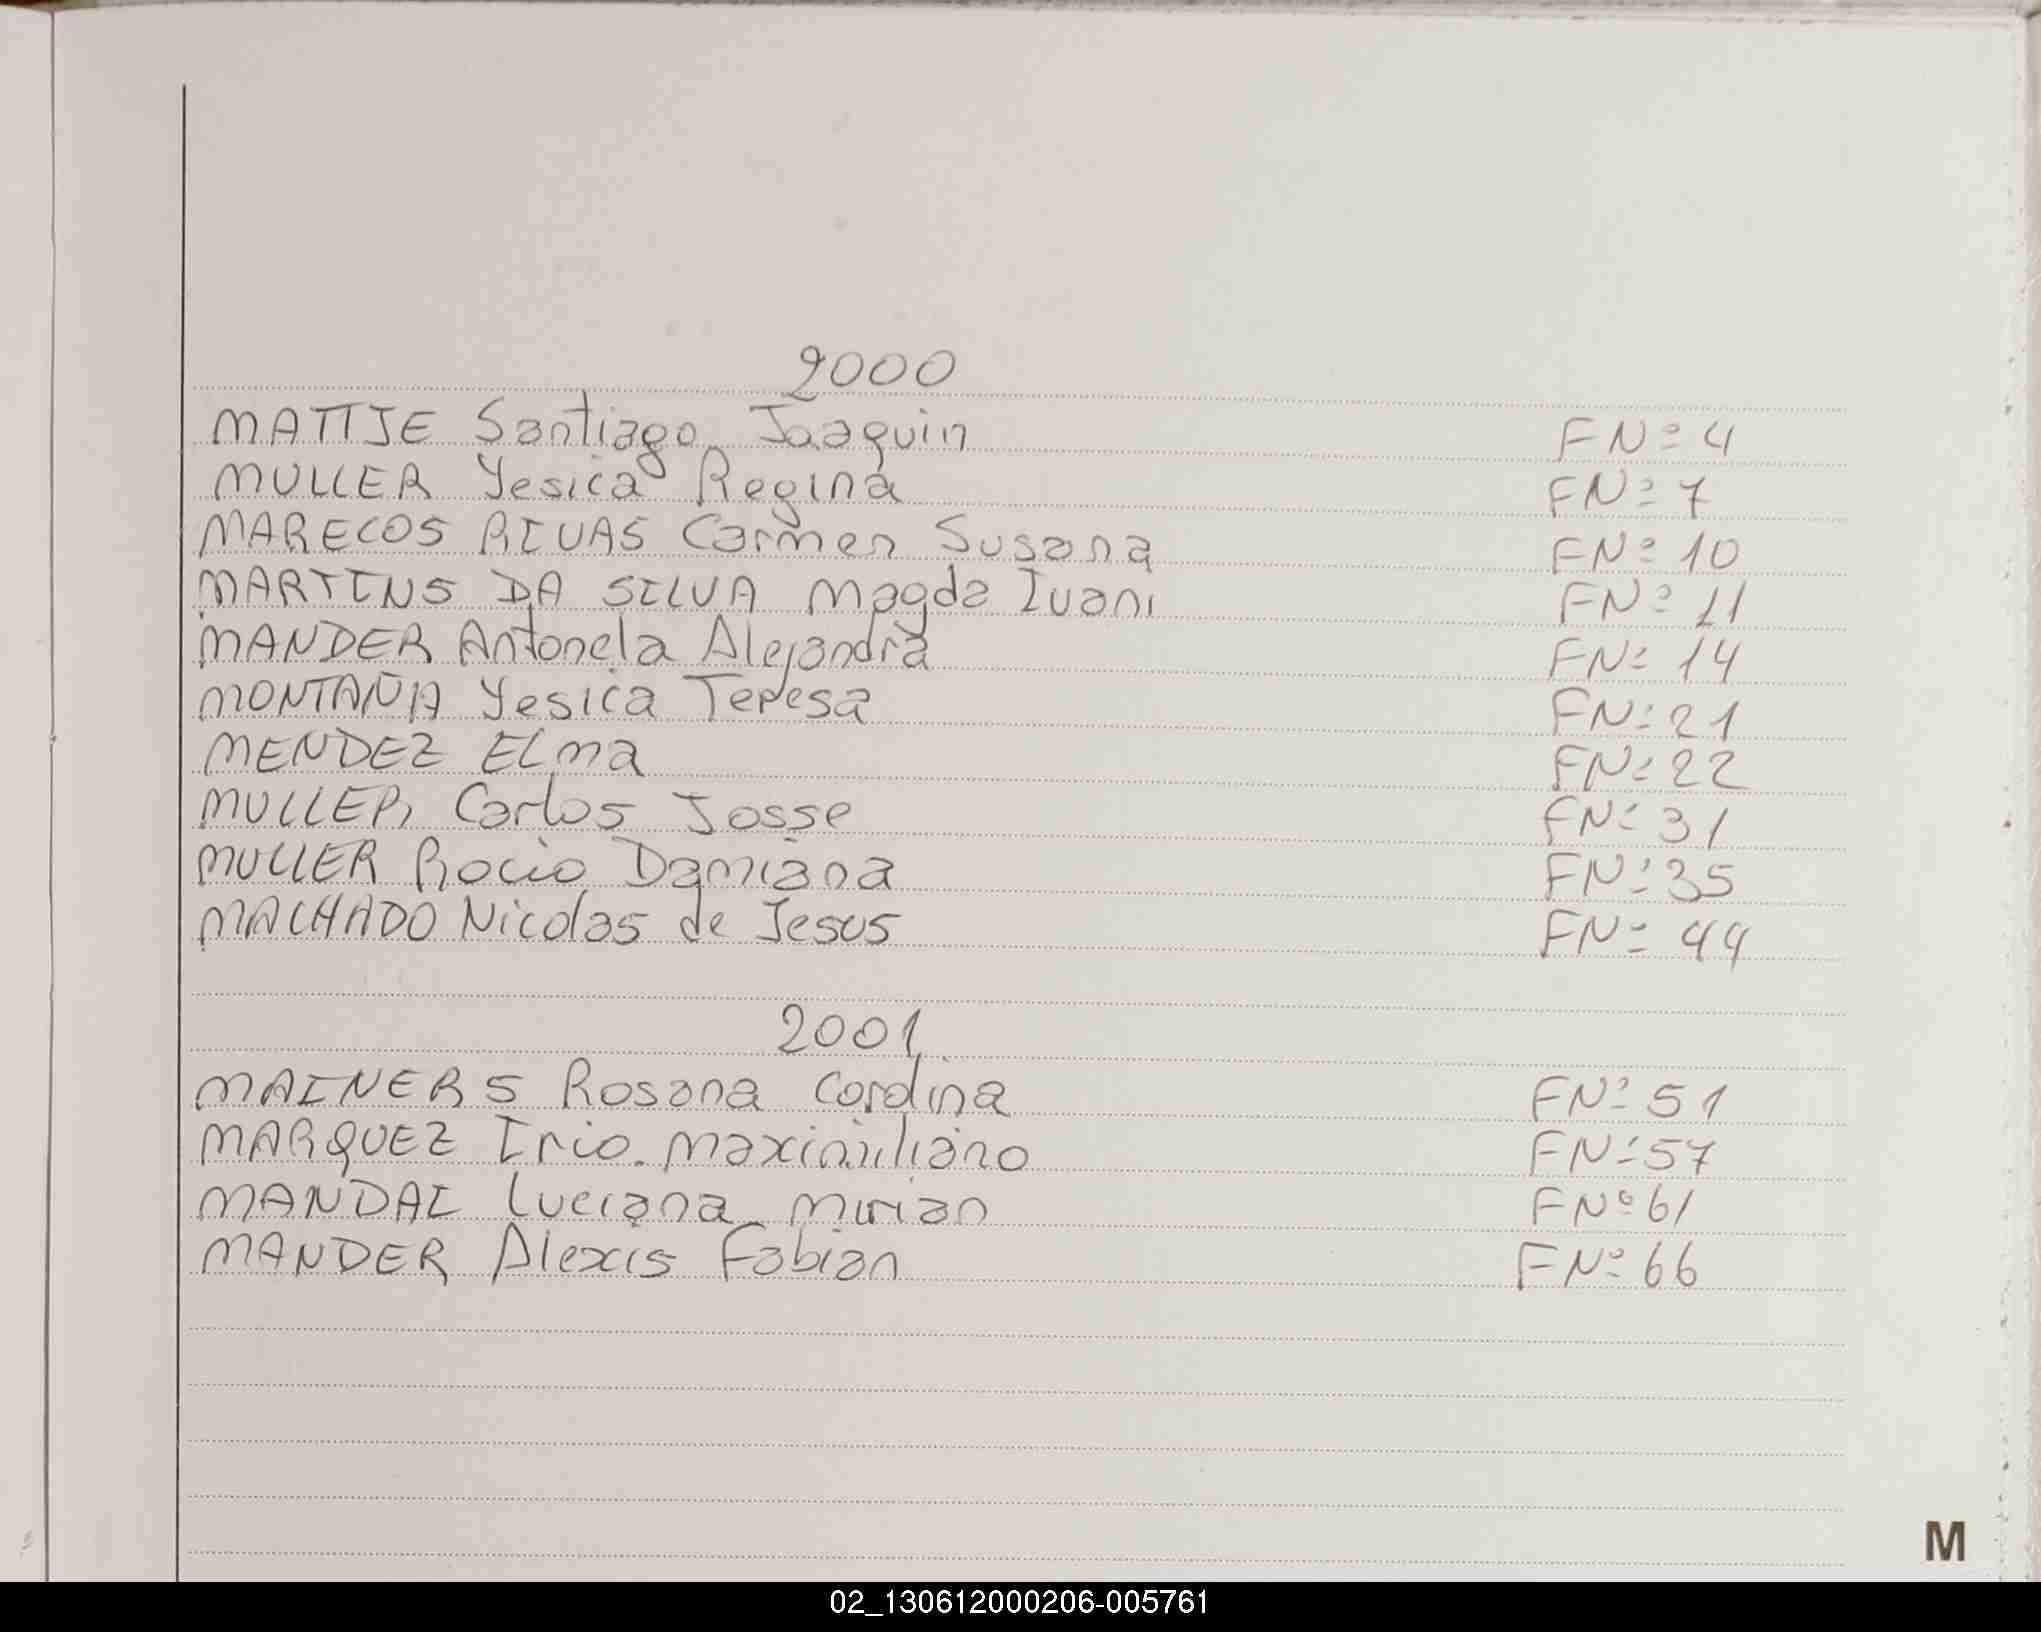 2000
MATTJE Santiago Joaquin FNº 4
MULLER Yesica Regina FNº 7
MARECOS RIVAS Carmen Susana FNº 10
MARTINS DA SILVA Magda Ivani FNº 11
MANDER Antonela Alejandra FNº 14
MONTAÑA Yesica Teresa FNº 21
MENDEZ ELma FNº 22
MULLER Carlos Josse FNº 31
MULLER Rocio Damiana FNº 35
MACHADO Nicolas de Jesus FNº 44
2001
MAINERS Rosana FNº 51
MARQUEZ Maximiliano FNº 57
Luciana Mirian FNº 61
MANDER Alexis Fabian FNº 66
M
02_130612000206-005761